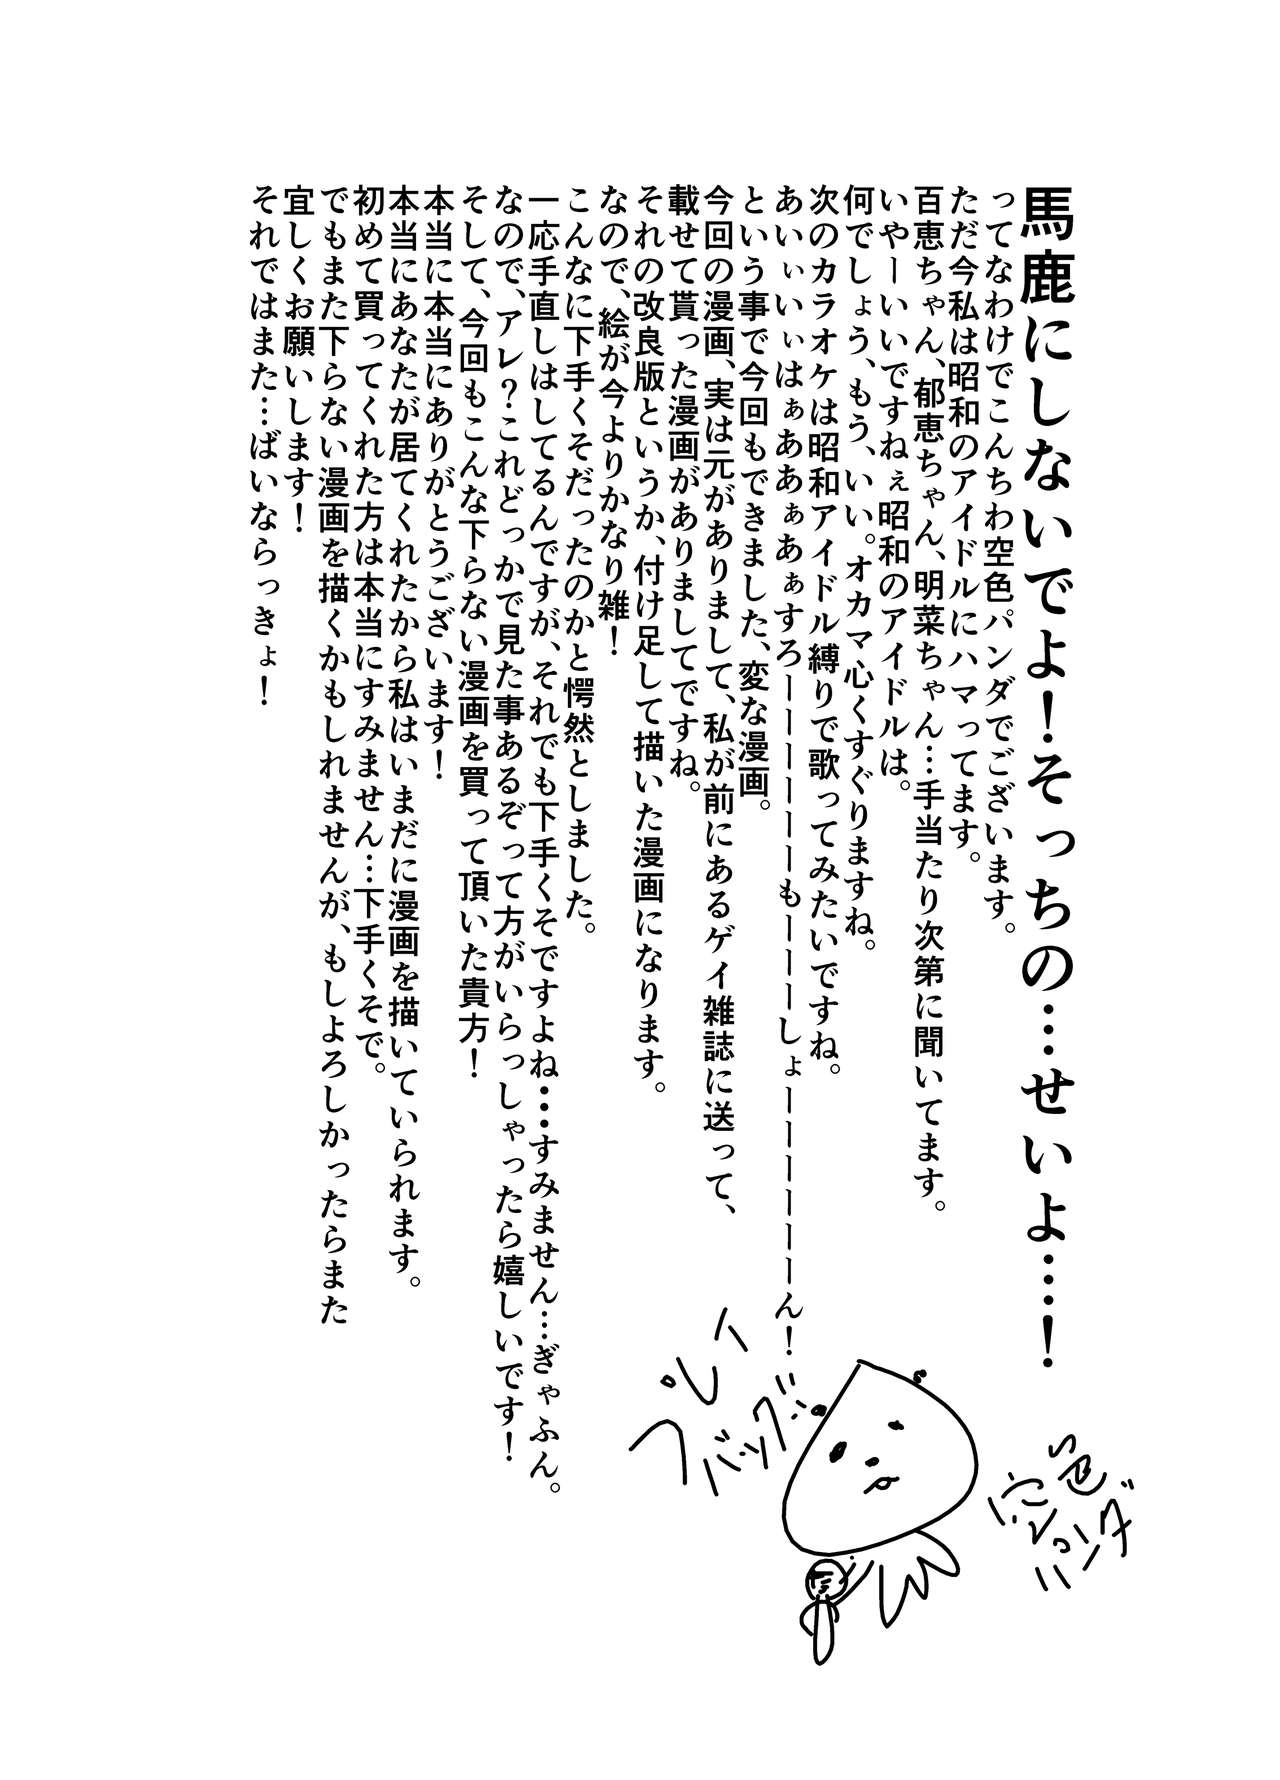 馬鹿にしないでよ!そっちの…せいよ…!
ってなわけでこんちわ空色パンダでございます。
ただ今私は昭和のアイドルにハマってます。
百恵ちゃん、郁恵ちゃん、明菜ちゃん…手当たり次第に聞いてます。
いやーいいですねぇ昭和のアイドルは。
何でしょう、もう、いい。オカマ心くすぐりますね。
次のカラオケは昭和アイドル縛りで歌ってみたいですね。
あいぃいぃはぁああぁあぁすろーーーーーーもーーーしょーーーーーーん!
という事で今回もできました、変な漫画。
今回の漫画、実は元がありまして、私が前にあるゲイ雑誌に送って、
載せて貰った漫画がありましてですね。
それの改良版というか、付け足して描いた漫画になります。
なので、絵が今よりかなり雑!
こんなに下手くそだったのかと愕然としました。
一応手直しはしてるんですが、それでも下手くそですよね…すみません…ぎゃふん。
なので、アレ?これどっかで見た事あるぞって方がいらっしゃったら嬉しいです!
そして、今回もこんな下らない漫画を買って頂いた貴方!
本当に本当にありがとうございます!
本当にあなたが居てくれたから私はいまだに漫画を描いていられます。
初めて買ってくれた方は本当にすみません…下手くそで。
でもまた下らない漫画を描くかもしれませんが、もしよろしかったらまた
宜しくお願いします!
それではまた…ばいならっきょ!
プレイ
バック!!
空色
パンダ